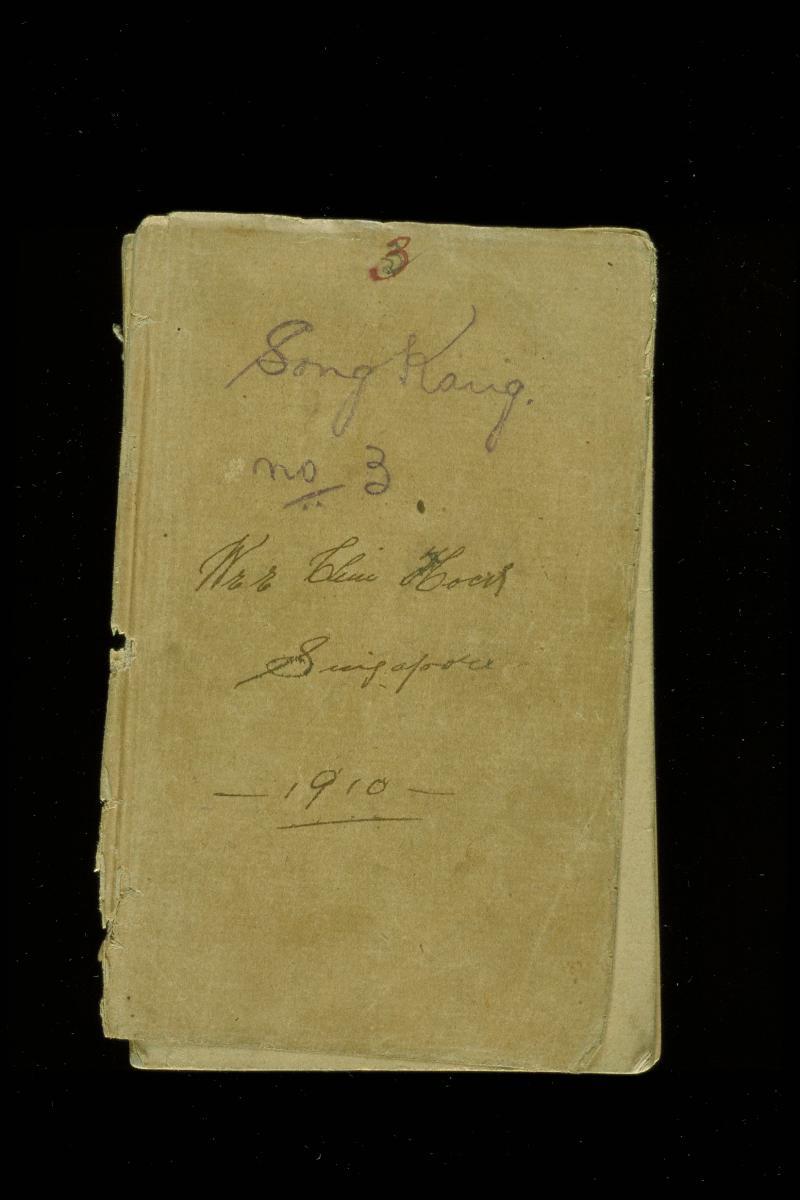 3
Song Kang.
no 3
Wee Chin Hock
Singapore
— 1910 —